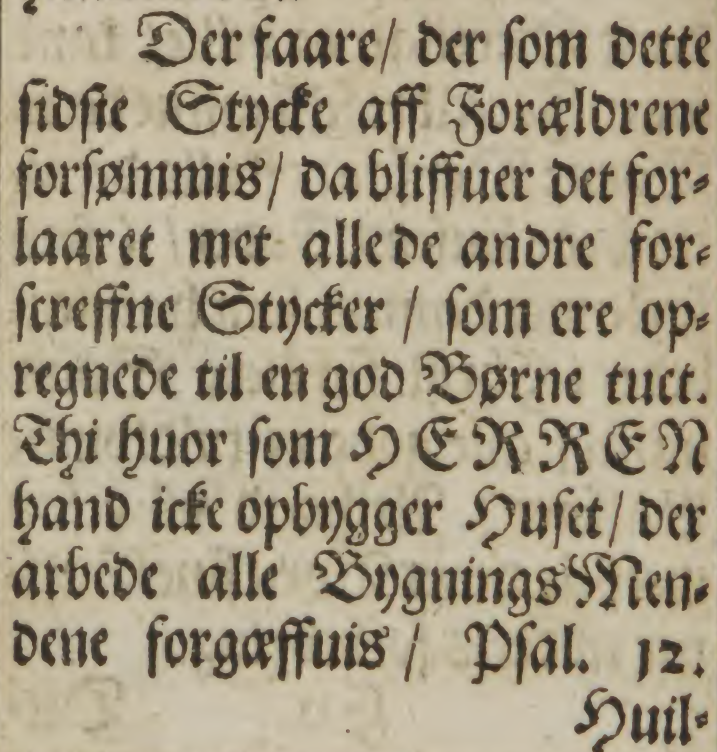 Der faare/ der ſom dette
ſidſte Stycke aff Forældrene
forſømmis/ da bliffuer det for⸗
laaret met alle de andre for⸗
ſcreffne Stycker / ſom ere op⸗
regnede til en god Børne tuct.
Thi huor ſom HERREN
hand icke opbygger Huſet/ der
arbede alle BygningsMen⸗
dene forgæffuis / Pſal. 12.
Huil⸗